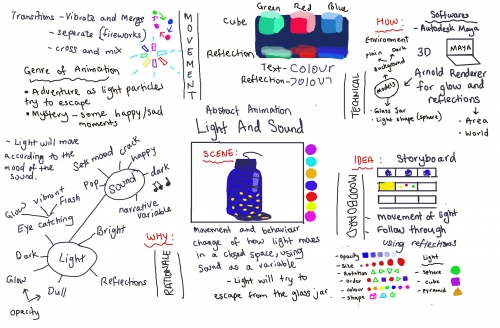 Transitions - Vibrate and Merge
- separate (fireworks)
- cross and mix
Genre of Animation
• Adventure as light particles
try to escape
• Mystery - some happy/sad
moments
MOVEMENT
Green Red Blue
Cube
Reflection
Text - Colour
Reflection - Colour
Abstract Animation
Light And Sound
TECHNICAL
HOW:
Environment
plain Dark
Background
Models
• Glass Jar
• Light shape (sphere)
Softwares
Autodesk Maya
3D
MAYA
Arnold Renderer
for glow and
reflections
• Area
• World
- Light will move
according to the
mood of the
sound.
Sound
Pop
Soft mood
crack
happy
dark
narrative
variable
Light
Glow
vibrant
Flash
Eye catching
Bright
Dark
Glow
opacity
Dull
Reflections
WHY:
RATIONALE
SCENE:
Movement and behaviour
change of how light moves
in a closed space, using
Sound as a variable.
- Light will try to
escape from the glass jar
MOODBOARD
IDEA:
Storyboard
- movement of light
- Follow through
using reflections
- Opacity
- Size
- Rotation
- Order
- colour
- shape
Light
- Sphere
- Cube
- Pyramid